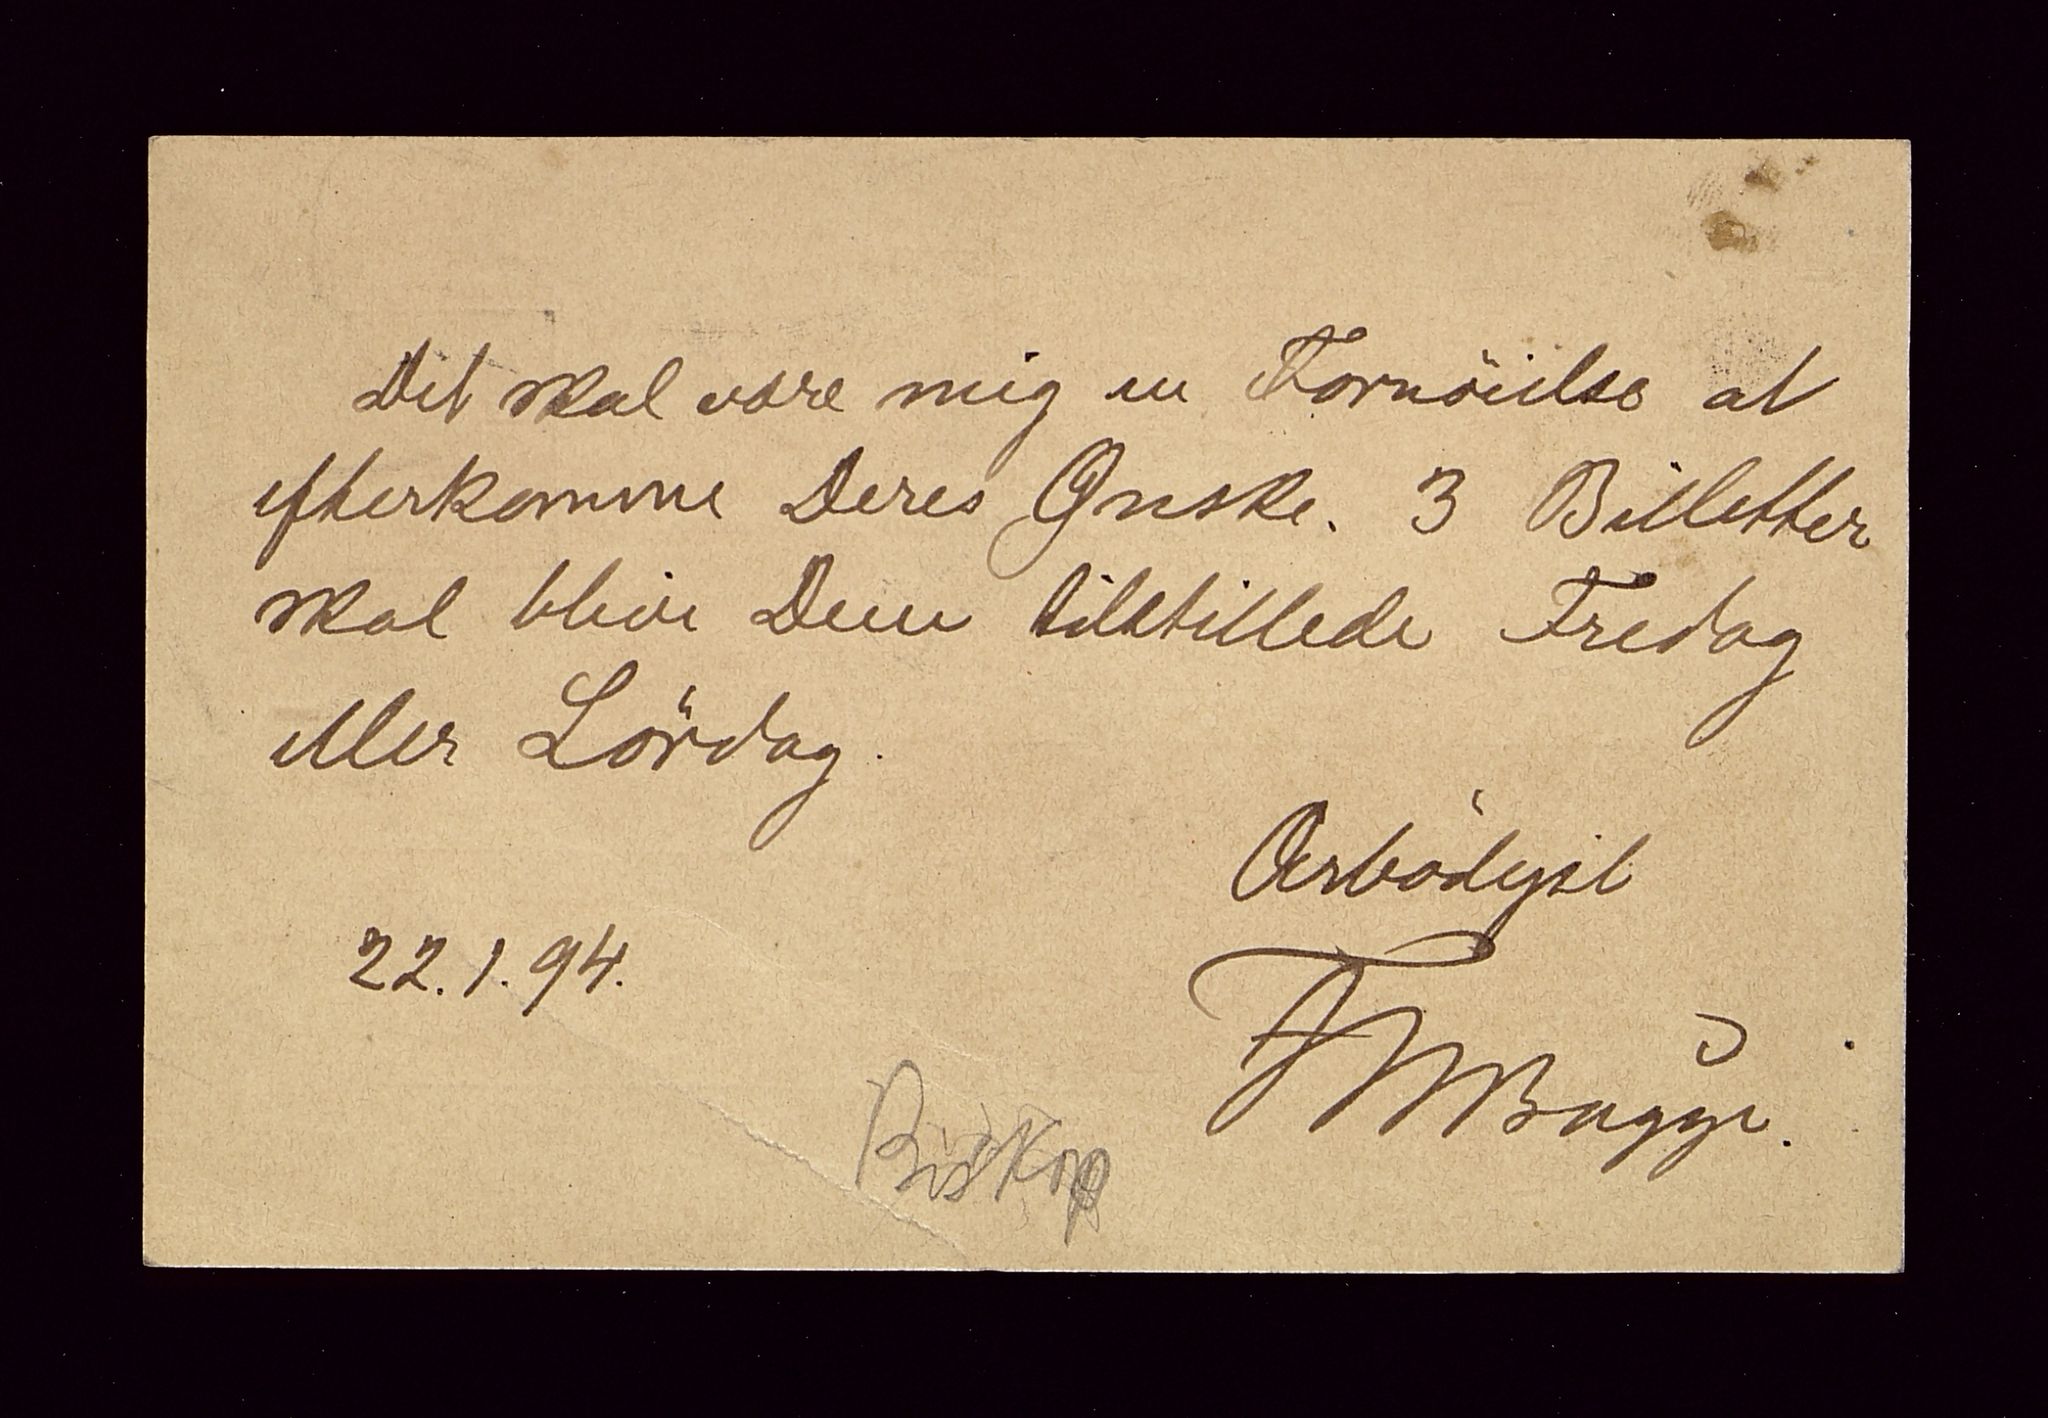 Det skal være mig en Fornöielse at
efterkomme Deres Ønske. 3 Billetter
skal blive Dem tilstillede Fredag
eller Lördag.
Ærbödigst
FWBugge.
22.1.94.
Biskop